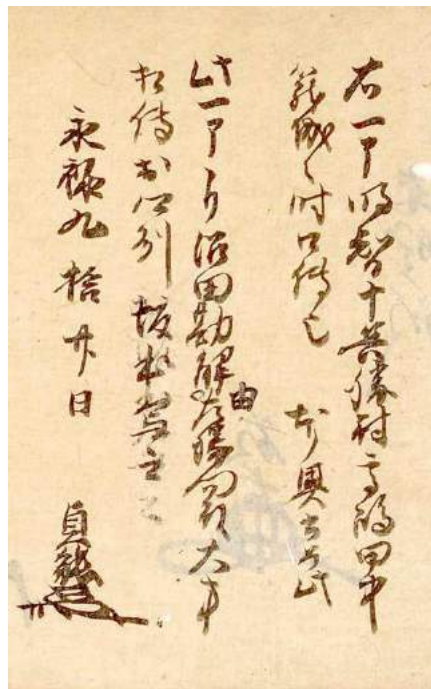 右一ア明智十兵衛尉高嶋田中
籠城之時口傳也 本奥書如此
此一ア自沼田勘解由左衛門尉大事
相傳於江州坂本寫之
永禄九拾廿日
貞能